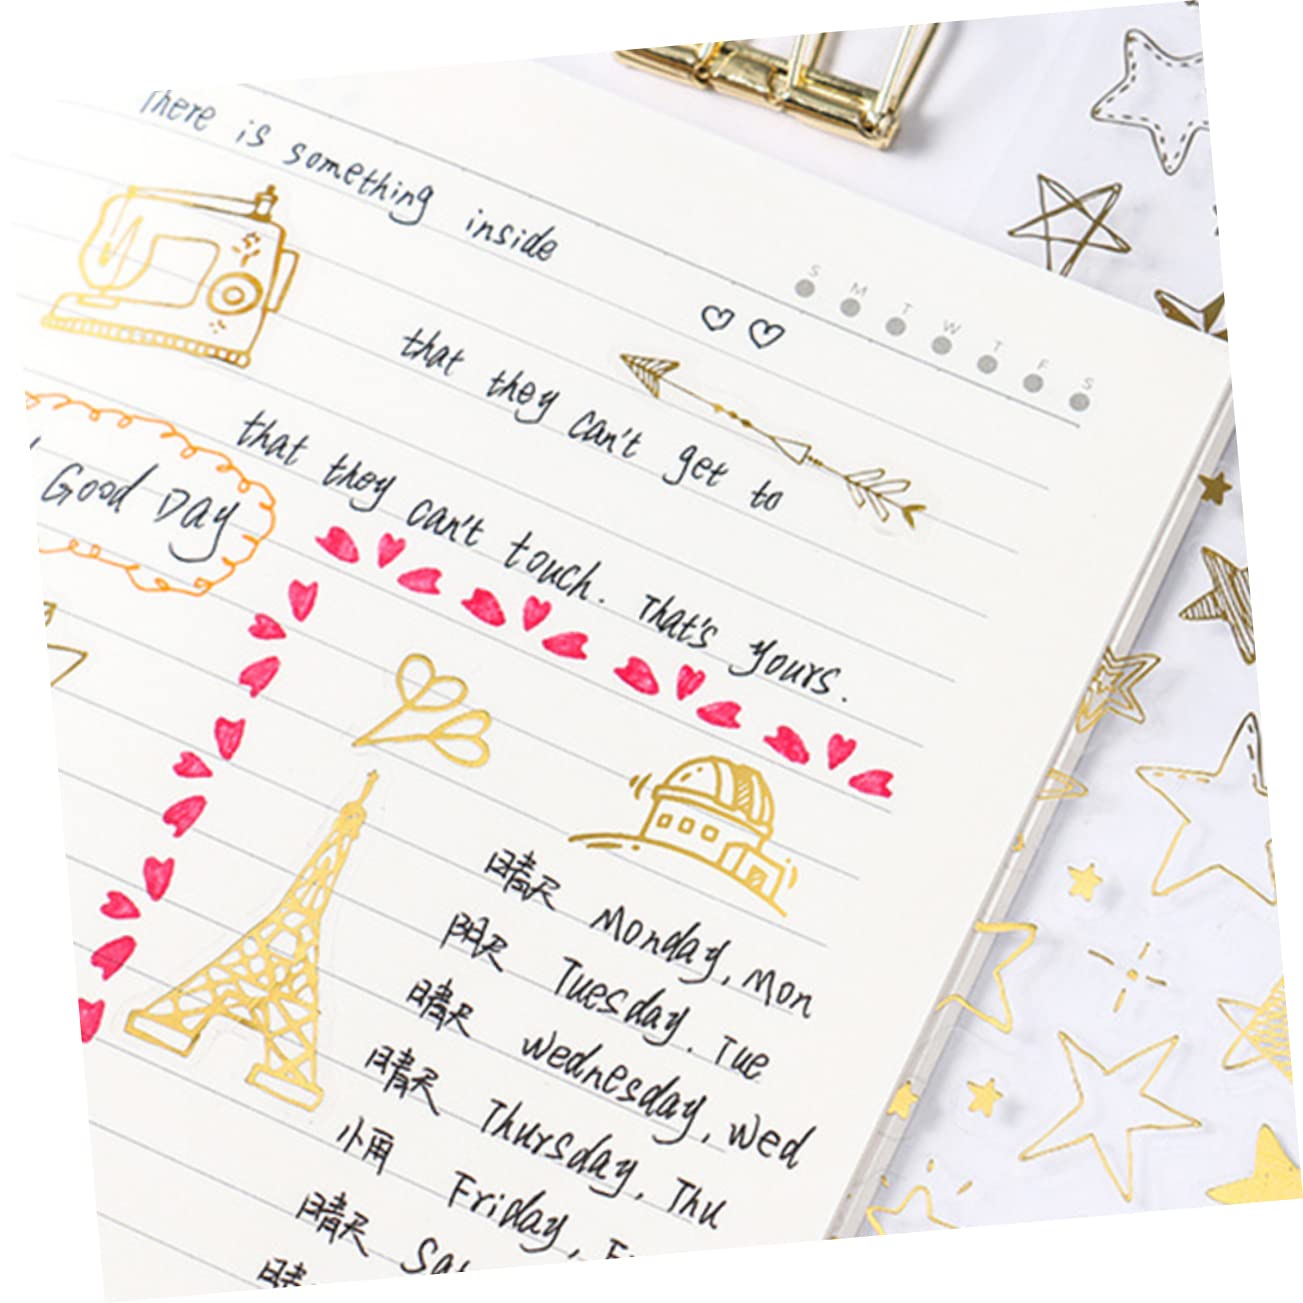 There is something inside
S M T W T F S
that they can't get to
that they can't touch. That's yours.
Good Day
晴天 Monday, Mon
阴天 Tuesday. Tue
晴天 Wednesday, Wed
晴天 Thursday, Thu
小雨 Friday,
晴天